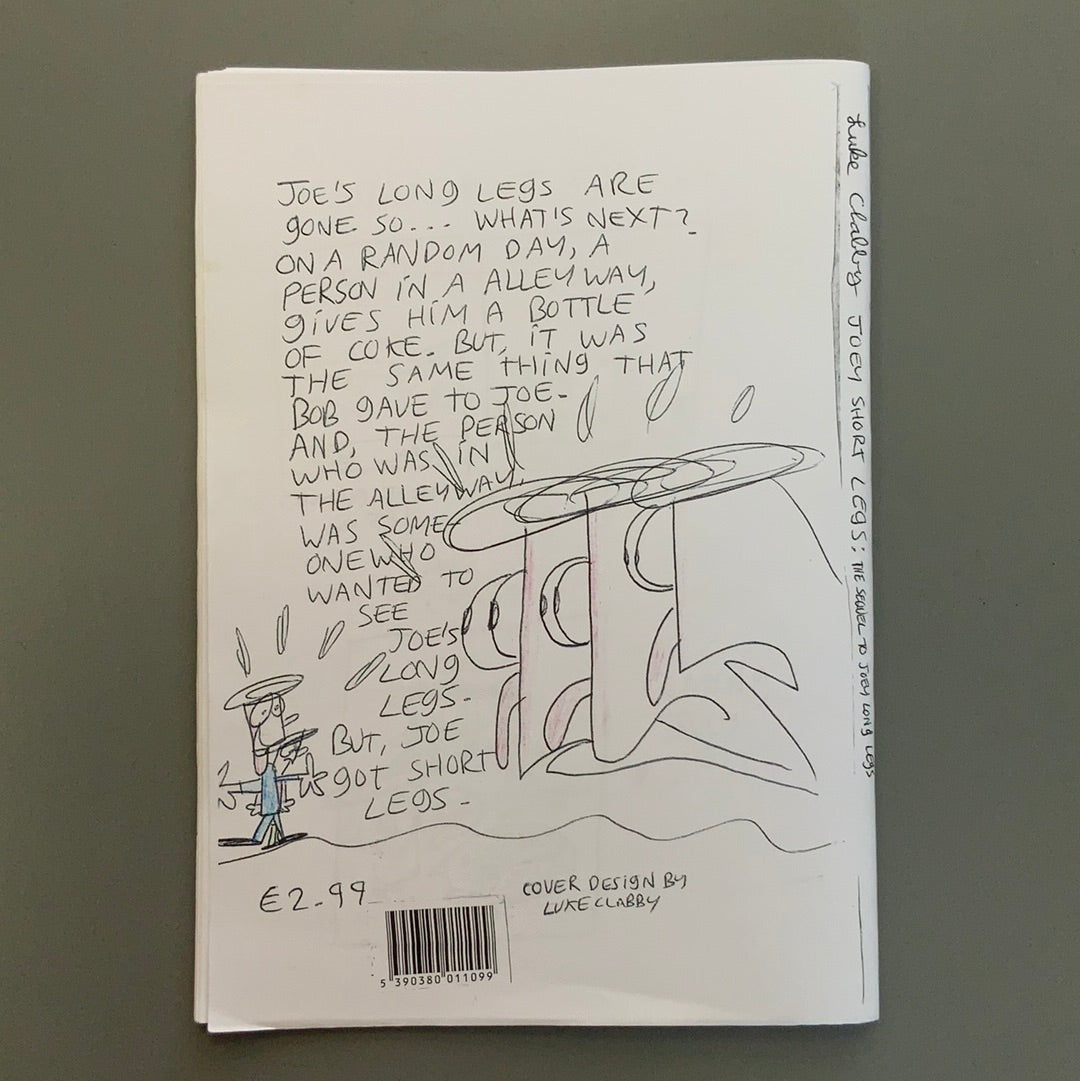 JOE'S LONG LEGS ARE
GONE SO... WHAT'S NEXT?
ON A RANDOM DAY, A
PERSON IN A ALLEY WAY,
GIVES HIM A BOTTLE
OF COKE. BUT, IT WAS
THE SAME THING THAT
BOB GAVE TO JOE.
AND, THE PERSON
WHO WAS IN
THE ALLEYWAY,
WAS SOME-
ONE WHO
WANTED TO
SEE
JOE'S
LONG
LEGS.
BUT, JOE
GOT SHORT
LEGS.
€2.99
COVER DESIGN BY
LUKE CLABBY
5 390380 011099
Luke Clabby JOEY SHORT LEGS: THE SEQUEL TO JOEY LONG LEGS